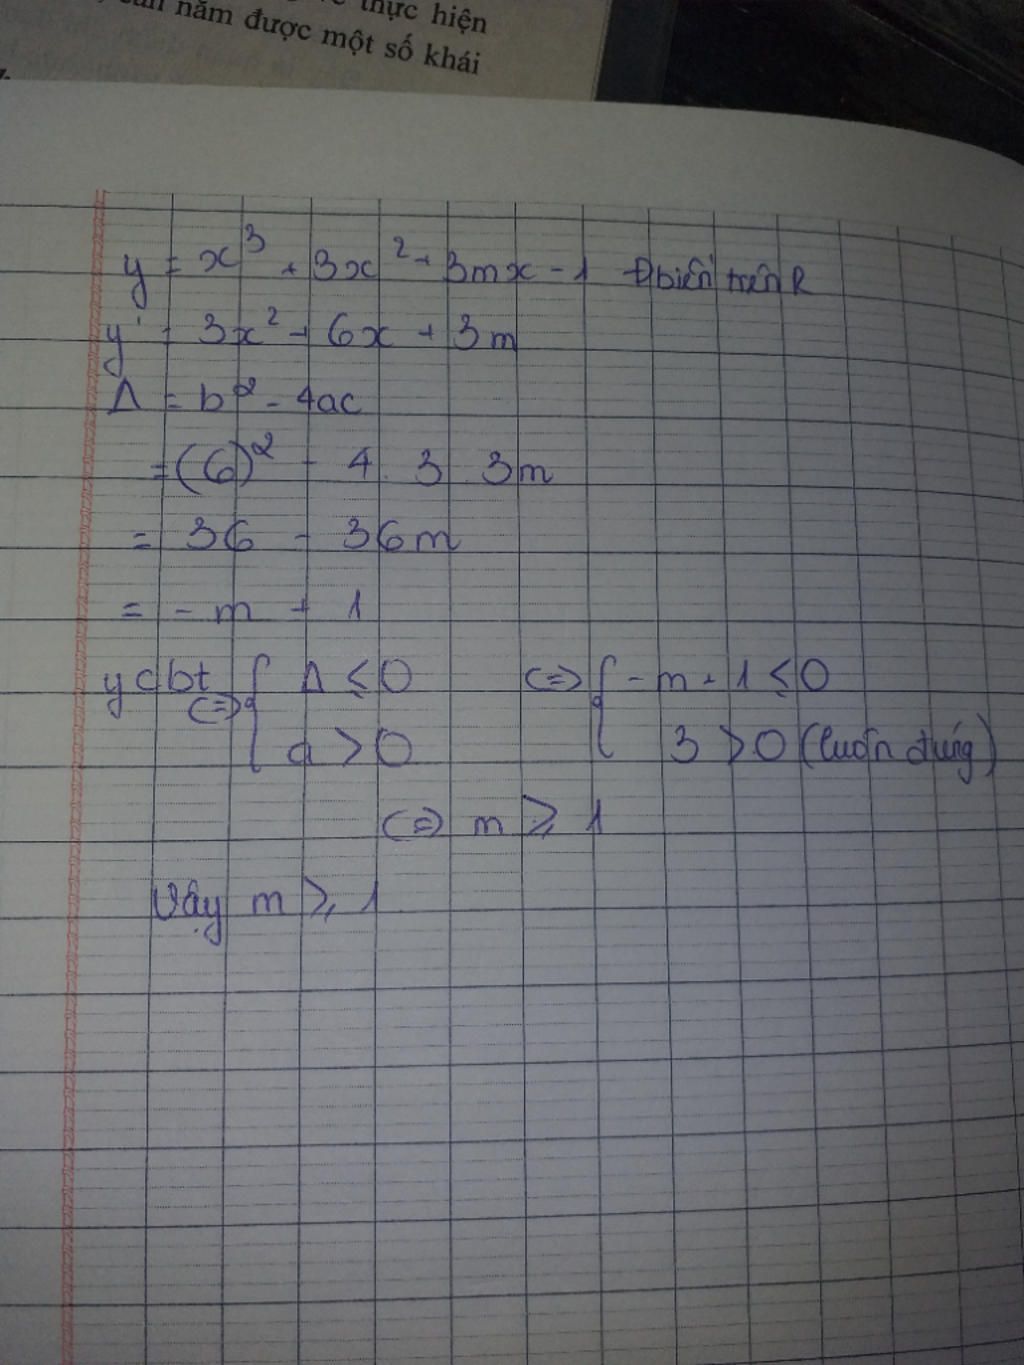 thực hiện
nắm được một số khái
y = x³ + 3x² + 3mx - 1 Đbiến trên R
y' = 3x² + 6x + 3m
Δ = b² - 4ac
= (6)² - 4.3.3m
= 36 - 36m
= -m + 1
ycbt <=> { Δ ≤ 0 <=> { -m + 1 ≤ 0
a > 0 3 > 0 (luôn đúng)
<=> m ≥ 1
Vậy m ≥ 1